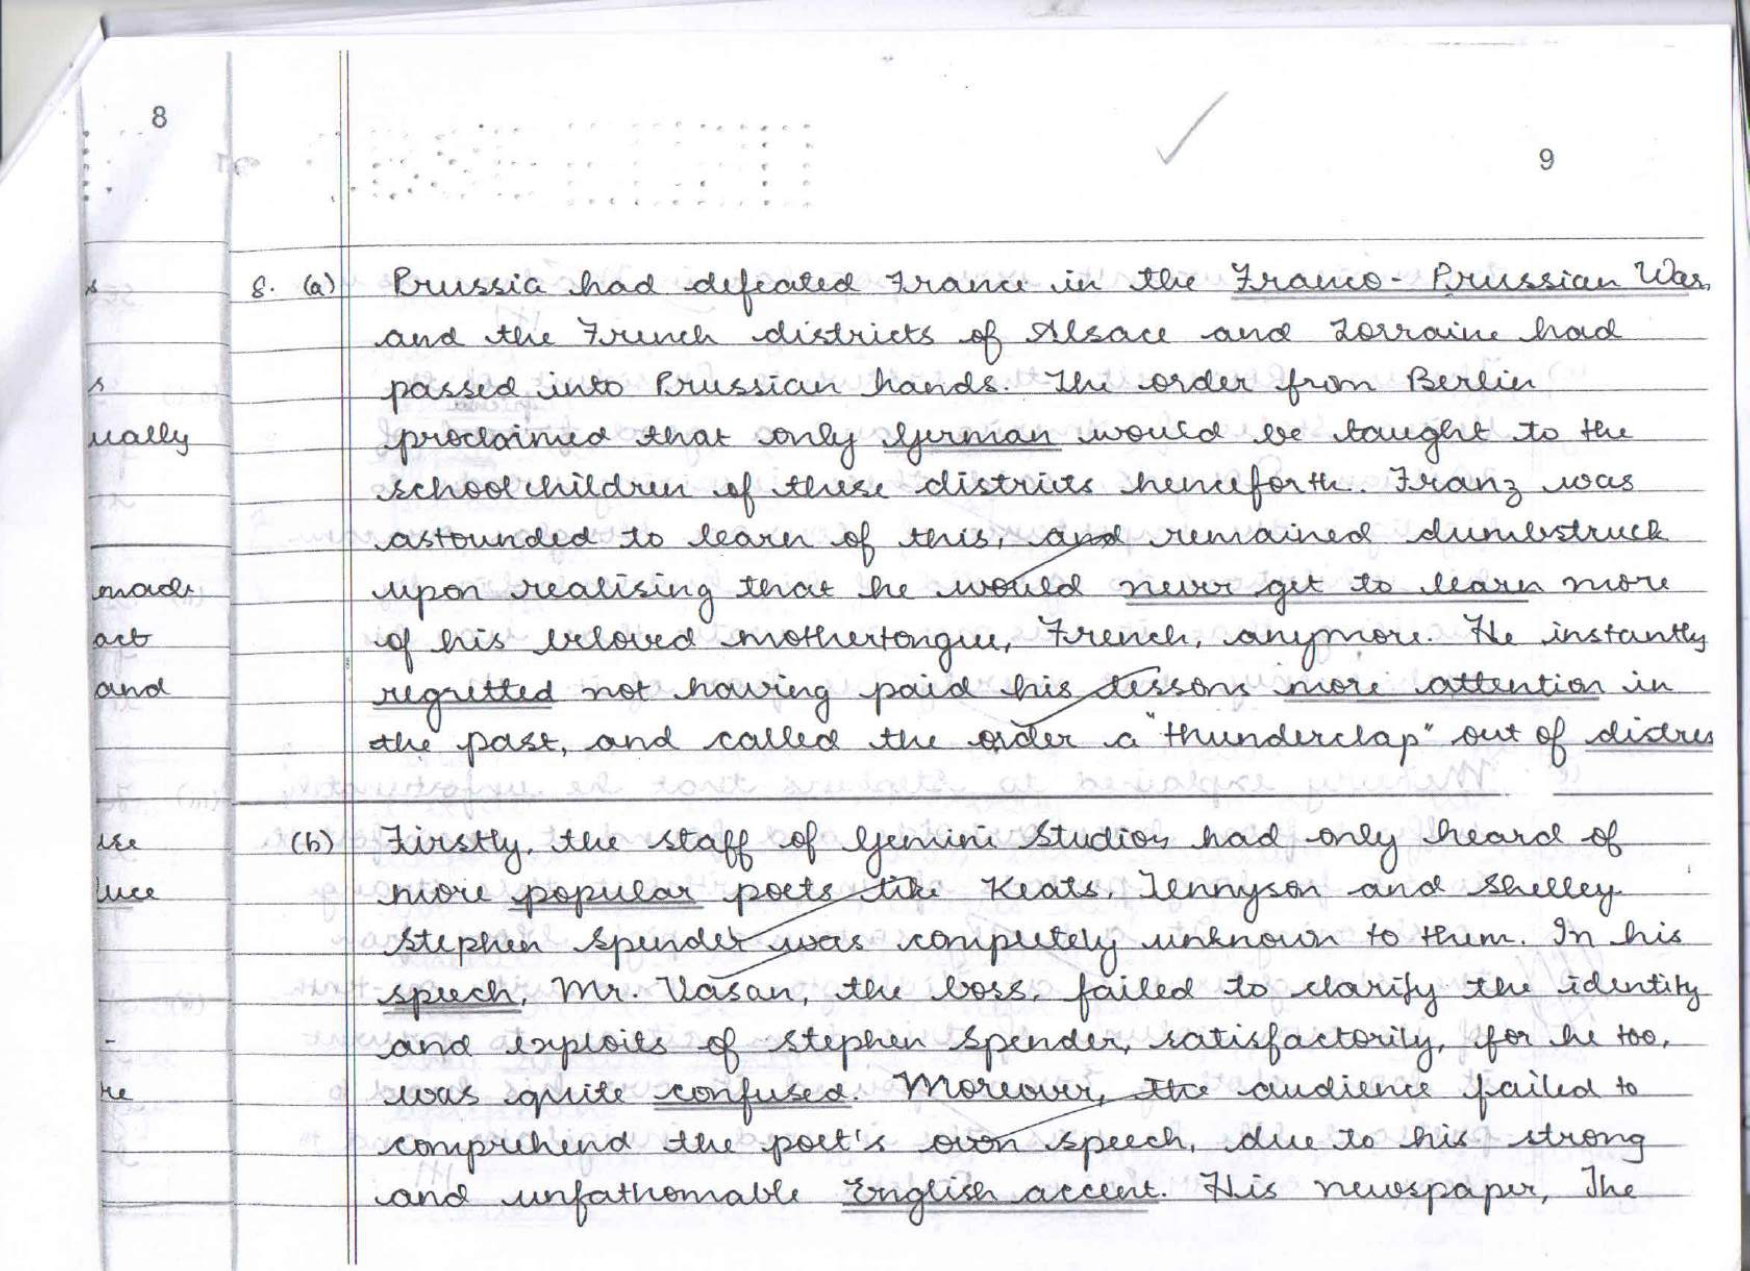 8
9
s
8. (a) Prussia had defeated France in the Franco-Prussian War,
and the French districts of Alsace and Lorraine had
s
passed into Prussian hands. The order from Berlin
ually
proclaimed that only German would be taught to the
schoolchildren of these districts henceforth. Franz was
astounded to learn of this, and remained dumbstruck
made
upon realising that he would never get to learn more
act
of his beloved mothertongue, French, anymore. He instantly
and
regretted not having paid his lessons more attention in
the past, and called the order a "thunderclap" out of distres
use
(b) Firstly, the staff of Gemini Studios had only heard of
luce
more popular poets like Keats, Tennyson and Shelley.
Stephen Spender was completely unknown to them. In his
speech, Mr. Vasan, the boss, failed to clarify the identity
-
and exploits of Stephen Spender, satisfactorily, for he too,
re
was quite confused. Moreover, the audience failed to
comprehend the poet's own speech, due to his strong
and unfathomable English accent. His newspaper, The